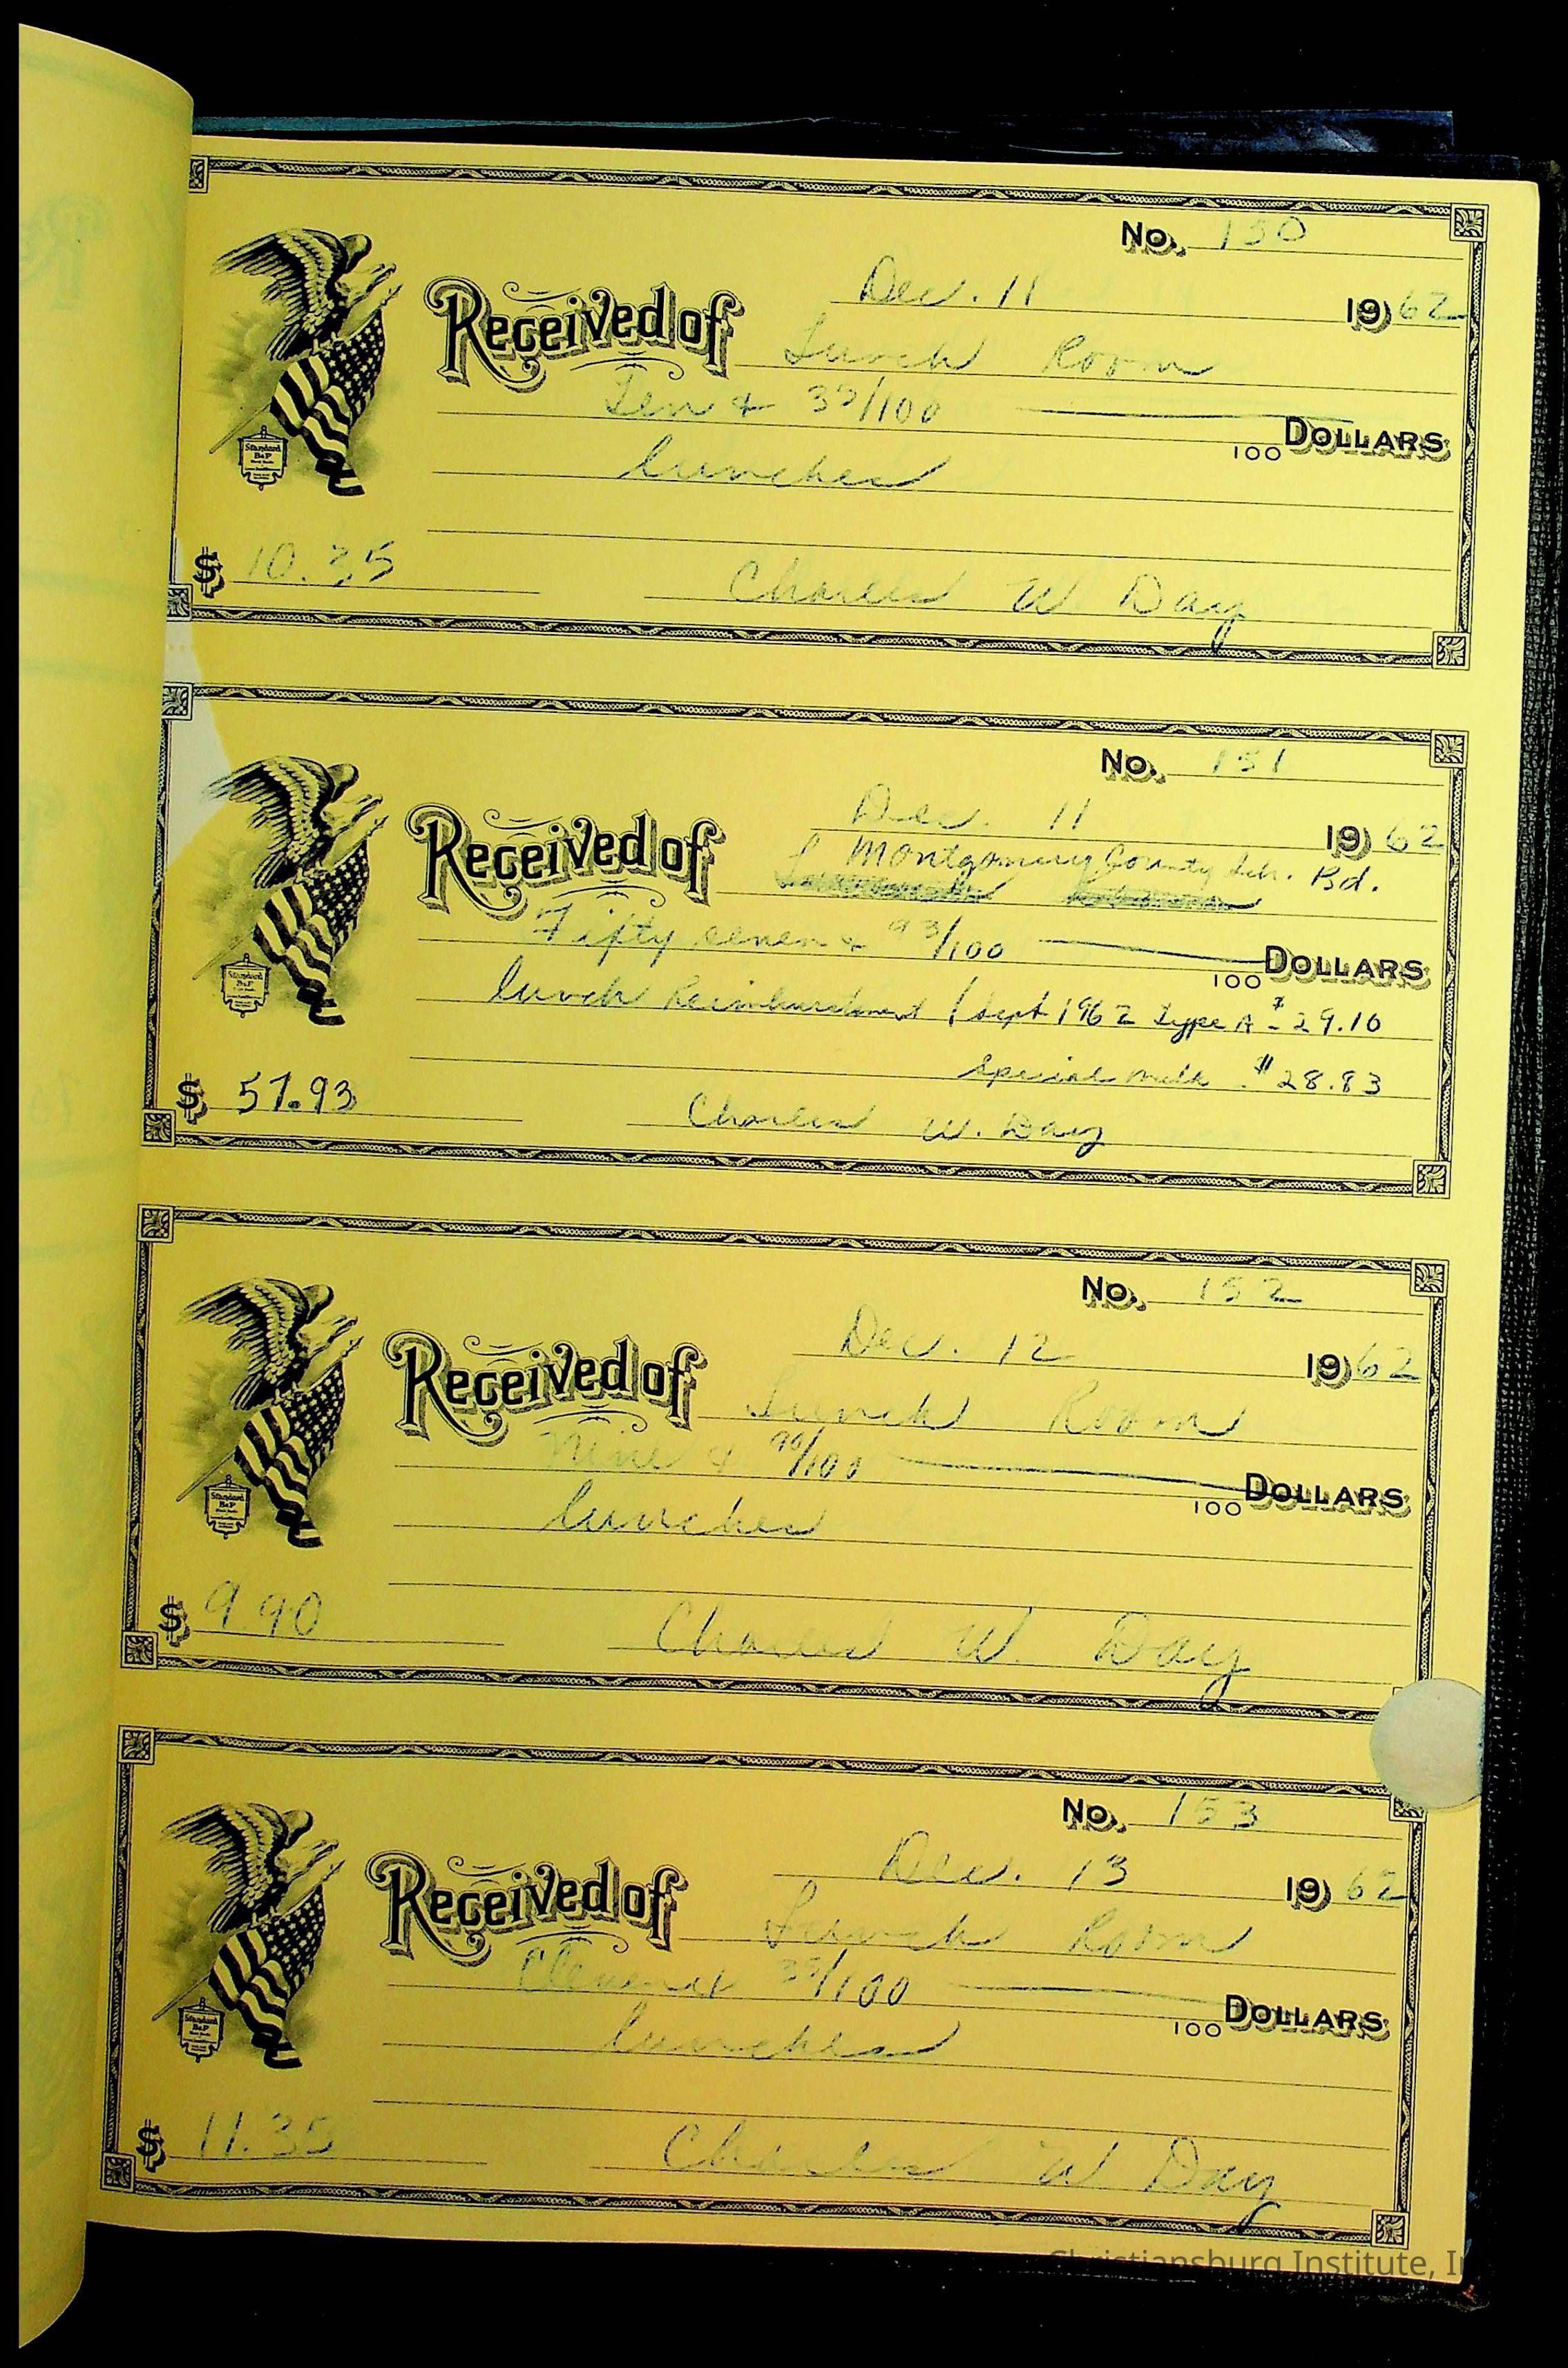 No. 150
Dec. 11 1962
Received of Lunch Room
Ten & 35/100 100 DOLLARS
lunches
$ 10.35 Charles W Day
Standard B&P
No. 151
Dec. 11 1962
Montgomery County Sch. Bd.
Received of
Fifty seven & 93/100 100 DOLLARS
lunch Reimbursement / Sept 1962 Type A - $29.10
Special milk $28.83
$ 57.93 Charles W. Day
Standard B&P
No. 152
Dec. 12 1962
Received of Lunch Room
Nine & 90/100 100 DOLLARS
lunches
$ 9.90 Charles W. Day
Standard B&P
No. 153
Dec. 13 1962
Received of Lunch Room
Eleven & 35/100 100 DOLLARS
lunches
$ 11.35 Charles W Day
Standard B&P
Christiansburg Institute, I